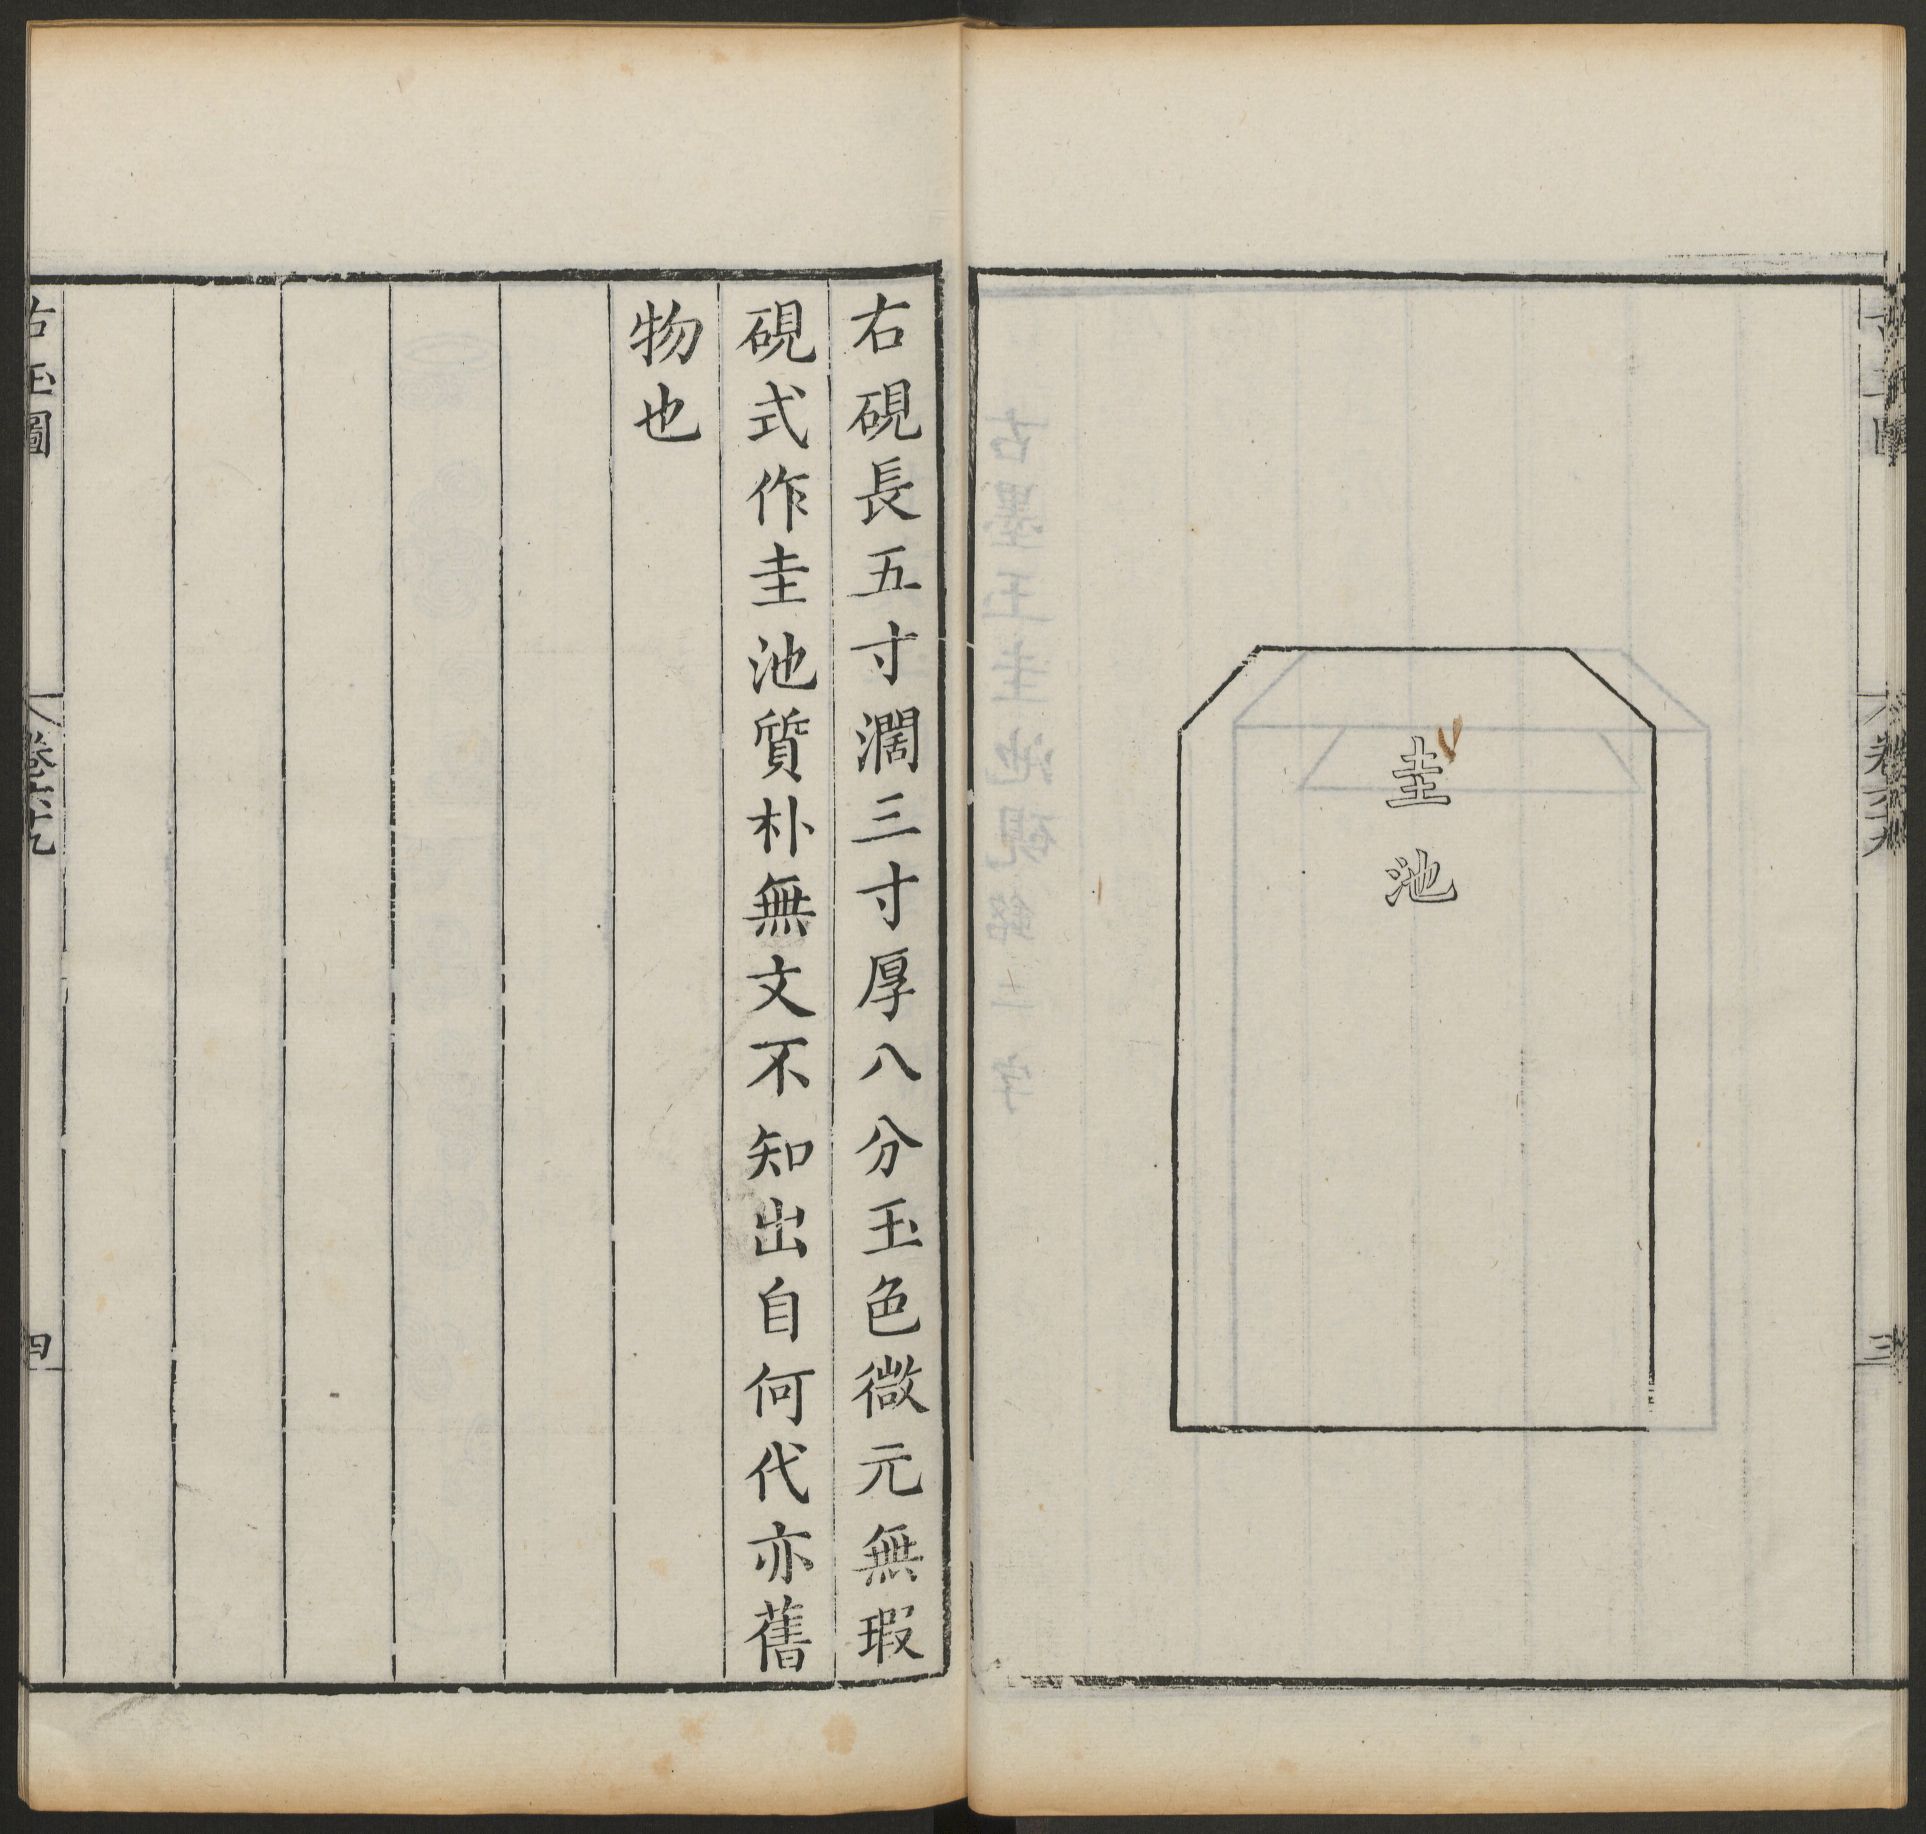 圭池
三
右硯長五寸濶三寸厚八分玉色微元無瑕
硯式作圭池質朴無文不知出自何代亦舊
物也
古玉圖
卷六十九
四